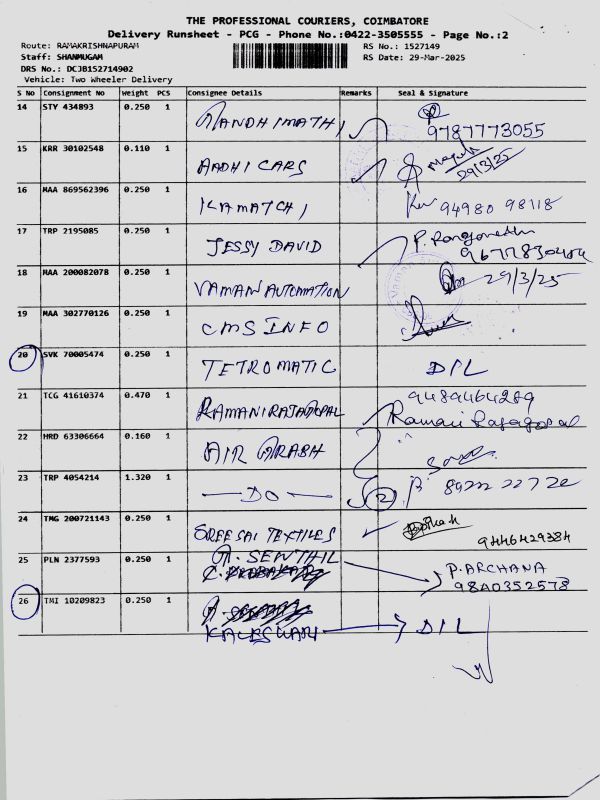 THE PROFESSIONAL COURIERS, COIMBATORE
Delivery Runsheet - PCG - Phone No.:0422-3505555 - Page No.:2
Route: RAMAKRISHNAPURAM RS No.: 1527149
Staff: SHANMUGAM RS Date: 29-Mar-2025
DRS No.: DCJB152714902
Vehicle: Two Wheeler Delivery
S No Consignment No Weight PCS Consignee Details Remarks Seal & Signature
14 STY 434893 0.250 1 GANDHIMATHI
9787773055
15 KRR 30102548 0.110 1 AADHI CARS 29/3/25
16 MAA 869562396 0.250 1 KAMATCHI 94980 98118
17 TRP 2195085 0.250 1 JESSY DAVID P.
18 MAA 200082078 0.250 1 VAMAN AUTOMATION 29/3/25
19 MAA 302770126 0.250 1 CMS INFO
20 SVK 70005474 0.250 1 TETROMATIC D/L
21 TCG 41610374 0.470 1 RAMANIRAJAGOPAL 9489464289
Ramani Rajagopal
22 HRD 63306664 0.160 1 AIR ARABH
23 TRP 4054214 1.320 1 —DO— 2
24 TMG 200721143 0.250 1 SREE SAI TEXTILES
9446429384
25 PLN 2377593 0.250 1 A. SENTHIL P. ARCHANA
9840352578
26 TMI 10209823 0.250 1
KALESWARI D/L